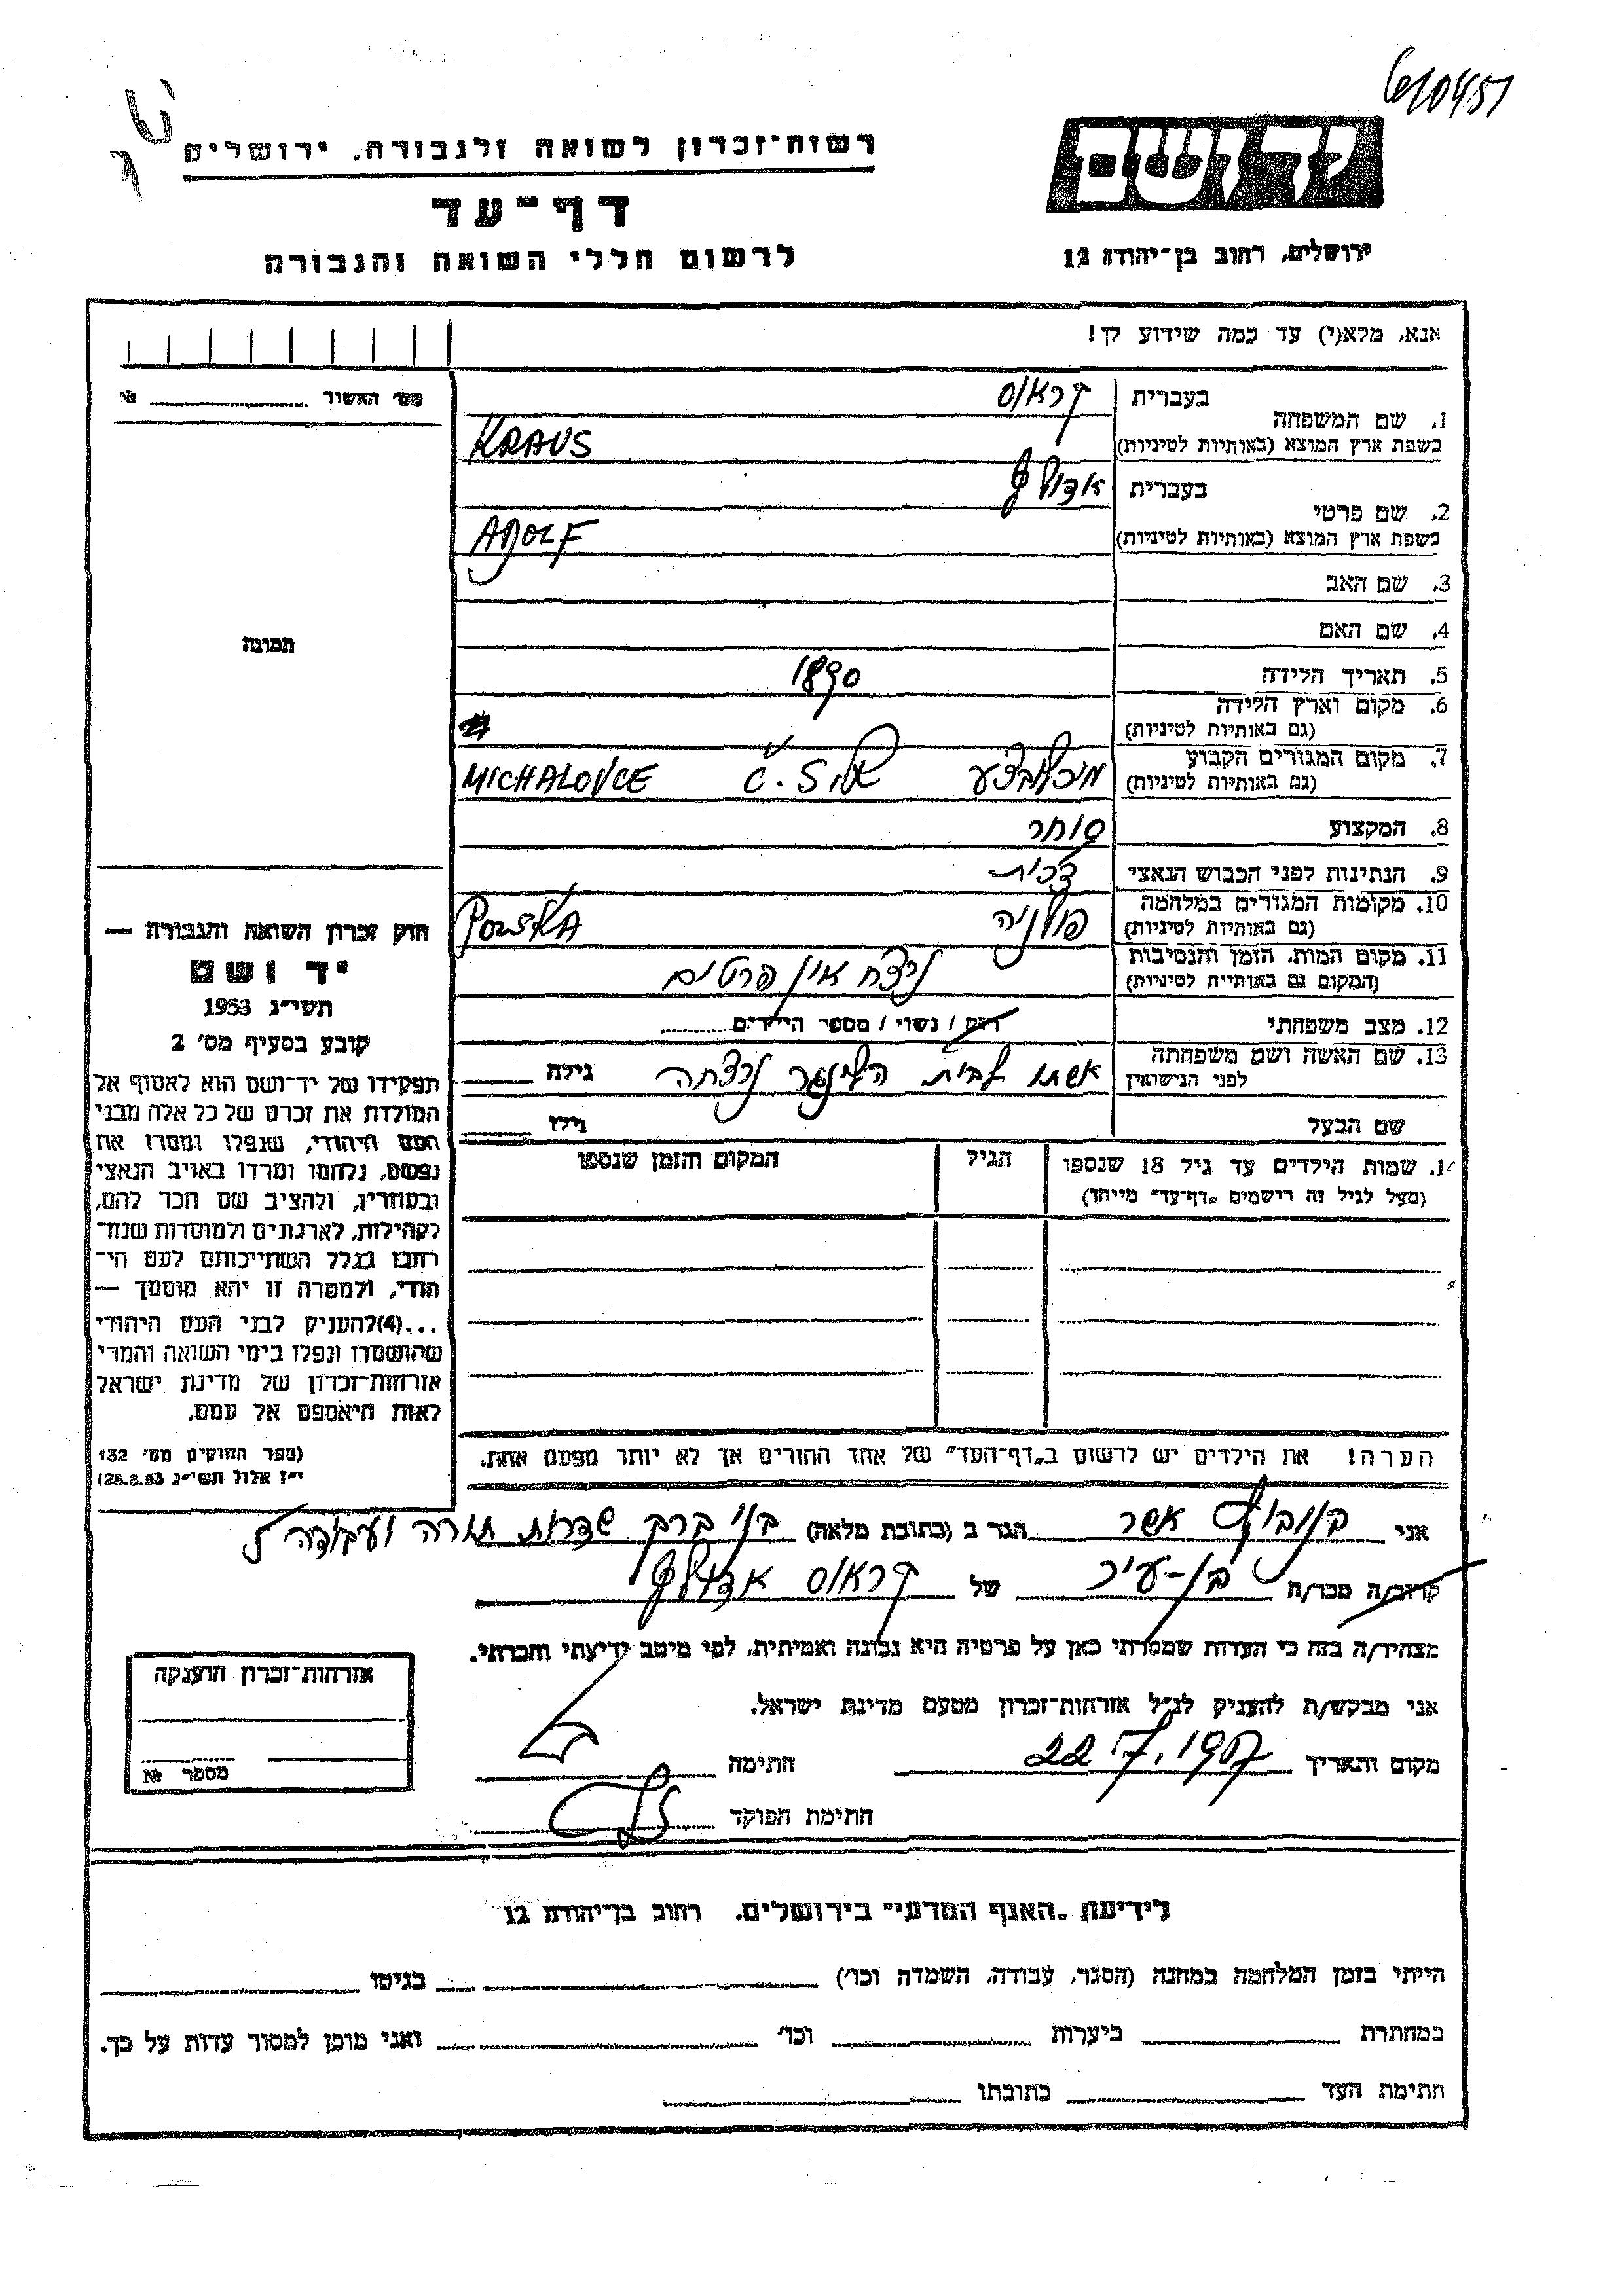 רשות־זכרון לשואה ולגבורה, ירושלים
דף־עד
לרשום חללי השואה והגבורה
יד ושם
ירושלים, רחוב בן־יהודה 12
אנא, מלא(י) עד כמה שידוע לך!
מס׳ האשור №
תמונה
1. שם המשפחה
בעברית קראוס
בשפת ארץ המוצא (באותיות לטיניות) KRAUS
2. שם פרטי
בעברית אדולף
בשפת ארץ המוצא (באותיות לטיניות) ADOLF
3. שם האב
4. שם האם
5. תאריך הלידה 1890
6. מקום וארץ הלידה
(גם באותיות לטיניות)
7. מקום המגורים הקבוע
(גם באותיות לטיניות) מיכלובצע Č.S. MICHALOVCE
8. המקצוע סוחר
9. הנתינות לפני הכבוש הנאצי צ׳כית
10. מקומות המגורים במלחמה
(גם באותיות לטיניות) פולניה POLSKA
11. מקום המות, הזמן והנסיבות
(המקום גם באותיות לטיניות) נרצח אין פרטים
12. מצב משפחתי רווק / נשוי / מספר הילדים
13. שם האשה ושם משפחתה
לפני הנישואין אשתו לבית נרצחה גילה
שם הבעל גילו
14. שמות הילדים עד גיל 18 שנספו
(מעל לגיל זה רישמים „דף־עד״ מייחד)
הגיל
המקום והזמן שנספו
הערה! את הילדים יש לרשום ב„דף־העד״ של אחד ההורים אך לא יותר מפעם אחת.
חוק זכרון השואה והגבורה —
יד ושם
תשי״ג 1953
קובע בסעיף מס׳ 2
תפקידו של יד־ושם הוא לאסוף אל
המולדת את זכרם של כל אלה מבני
העם היהודי, שנפלו ומסרו את
נפשם, נלחמו ומרדו באויב הנאצי
ובעוזריו, ולהציב שם וזכר להם,
לקהילות, לארגונים ולמוסדות שנח־
רבו בגלל השתייכותם לעם הי־
הודי, ולמטרה זו יהא מוסמך —
...(4)להעניק לבני העם היהודי
שהושמדו ונפלו בימי השואה והמרי
אזרחות־זכרון של מדינת ישראל
לאות היאספם אל עמם.
(ספר החוקים מס׳ 132
י״ז אלול תשי״ג 28.8.53)
אני אשר הגר ב (כתובת מלאה) בני ברק שדרות תורה ועבודה 7
קרוב/ה מכר/ה בן-עיר של קראוס אדולף
מצהיר/ה בזה כי העדות שמסרתי כאן על פרטיה היא נכונה ואמיתית, לפי מיטב ידיעתי והכרתי.
אני מבקש/ת להעניק לנ״ל אזרחות־זכרון מטעם מדינת ישראל.
מקום ותאריך 22.7.1957 חתימה
חתימת הפוקד
אזרחות־זכרון הוענקה
מספר №
לידיעת „האגף המדעי״ בירושלים, רחוב בן־יהודה 12
הייתי בזמן המלחמה במחנה (הסגר, עבודה, השמדה וכו׳) בגיטו
במחתרת ביערות וכו׳ ואני מוכן למסור עדות על כך.
חתימת העד כתובתו